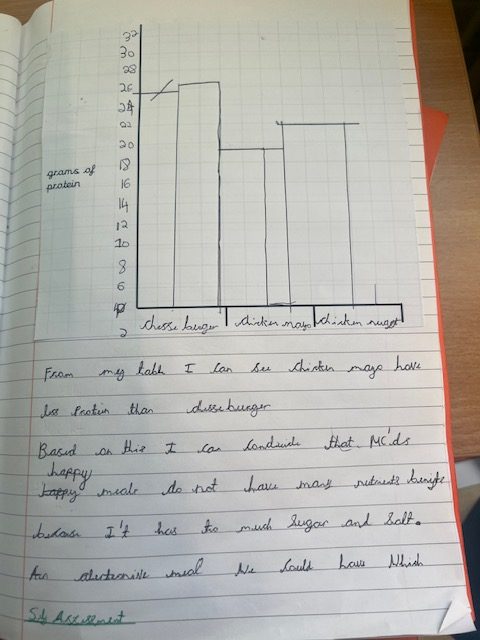 32
30
28
26
24
22
20
18
16
14
12
10
8
6
2
grams of
protein
chesse burger
chicken mayo
chicken nugget
From my table I can see chicken mayo have
less Protein than chesse burger
Based on this I can that MC'ds
happy
happy meals do not have many benefits
because I't has too much Sugar and Salt.
An meal We could have Which
Self Assessment